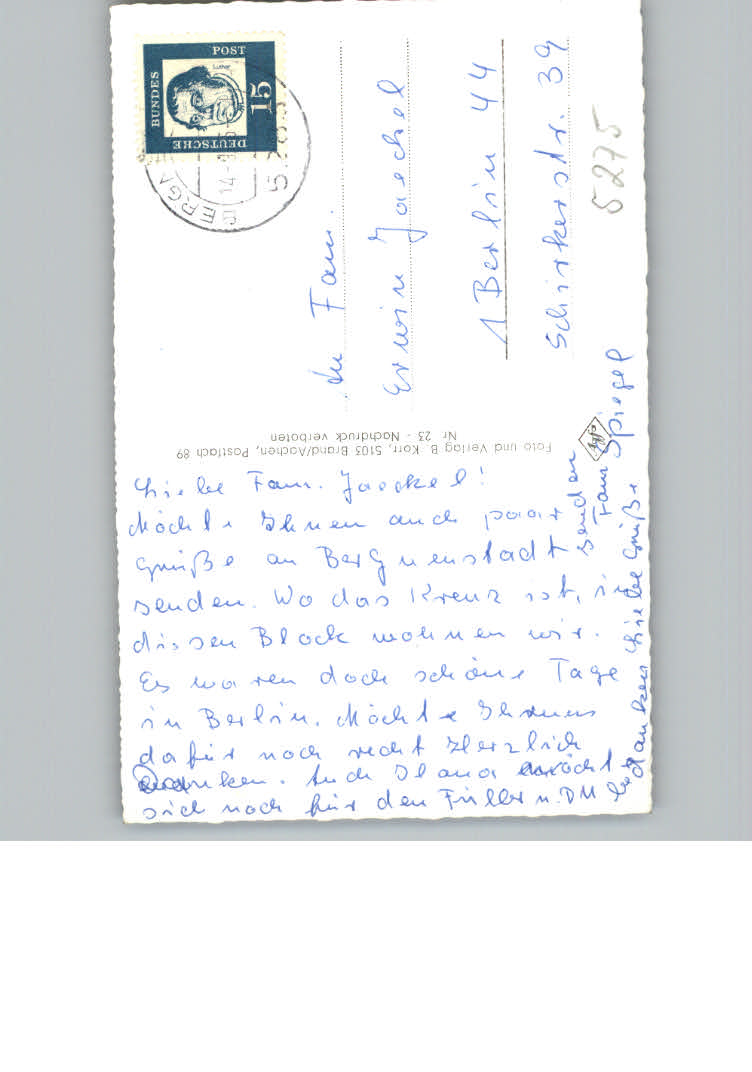 DEUTSCHE
BUNDES
POST
Luther
15
An Fam.
Erwin Jaeckel
1 Berlin 44
Schierkerstr. 39
5275
Foto und Verlag B. Korr, 5103 Brand/Aachen, Postfach 89
Nr. 23 - Nachdruck verboten
Agfa
Liebe Fam. Jaeckel!
Möchte Ihnen auch paar
Grüße an Bergneustadt
senden. Wo das Kreuz ist, in
diesen Block wohnen wir.
Es waren doch schöne Tage
in Berlin. Möchte Ihnen
dafür noch recht Herzlich
danken. Auch möcht
sich noch für den Füller u. DM
bedanken Liebe Grüße
senden
Fam Spiegel